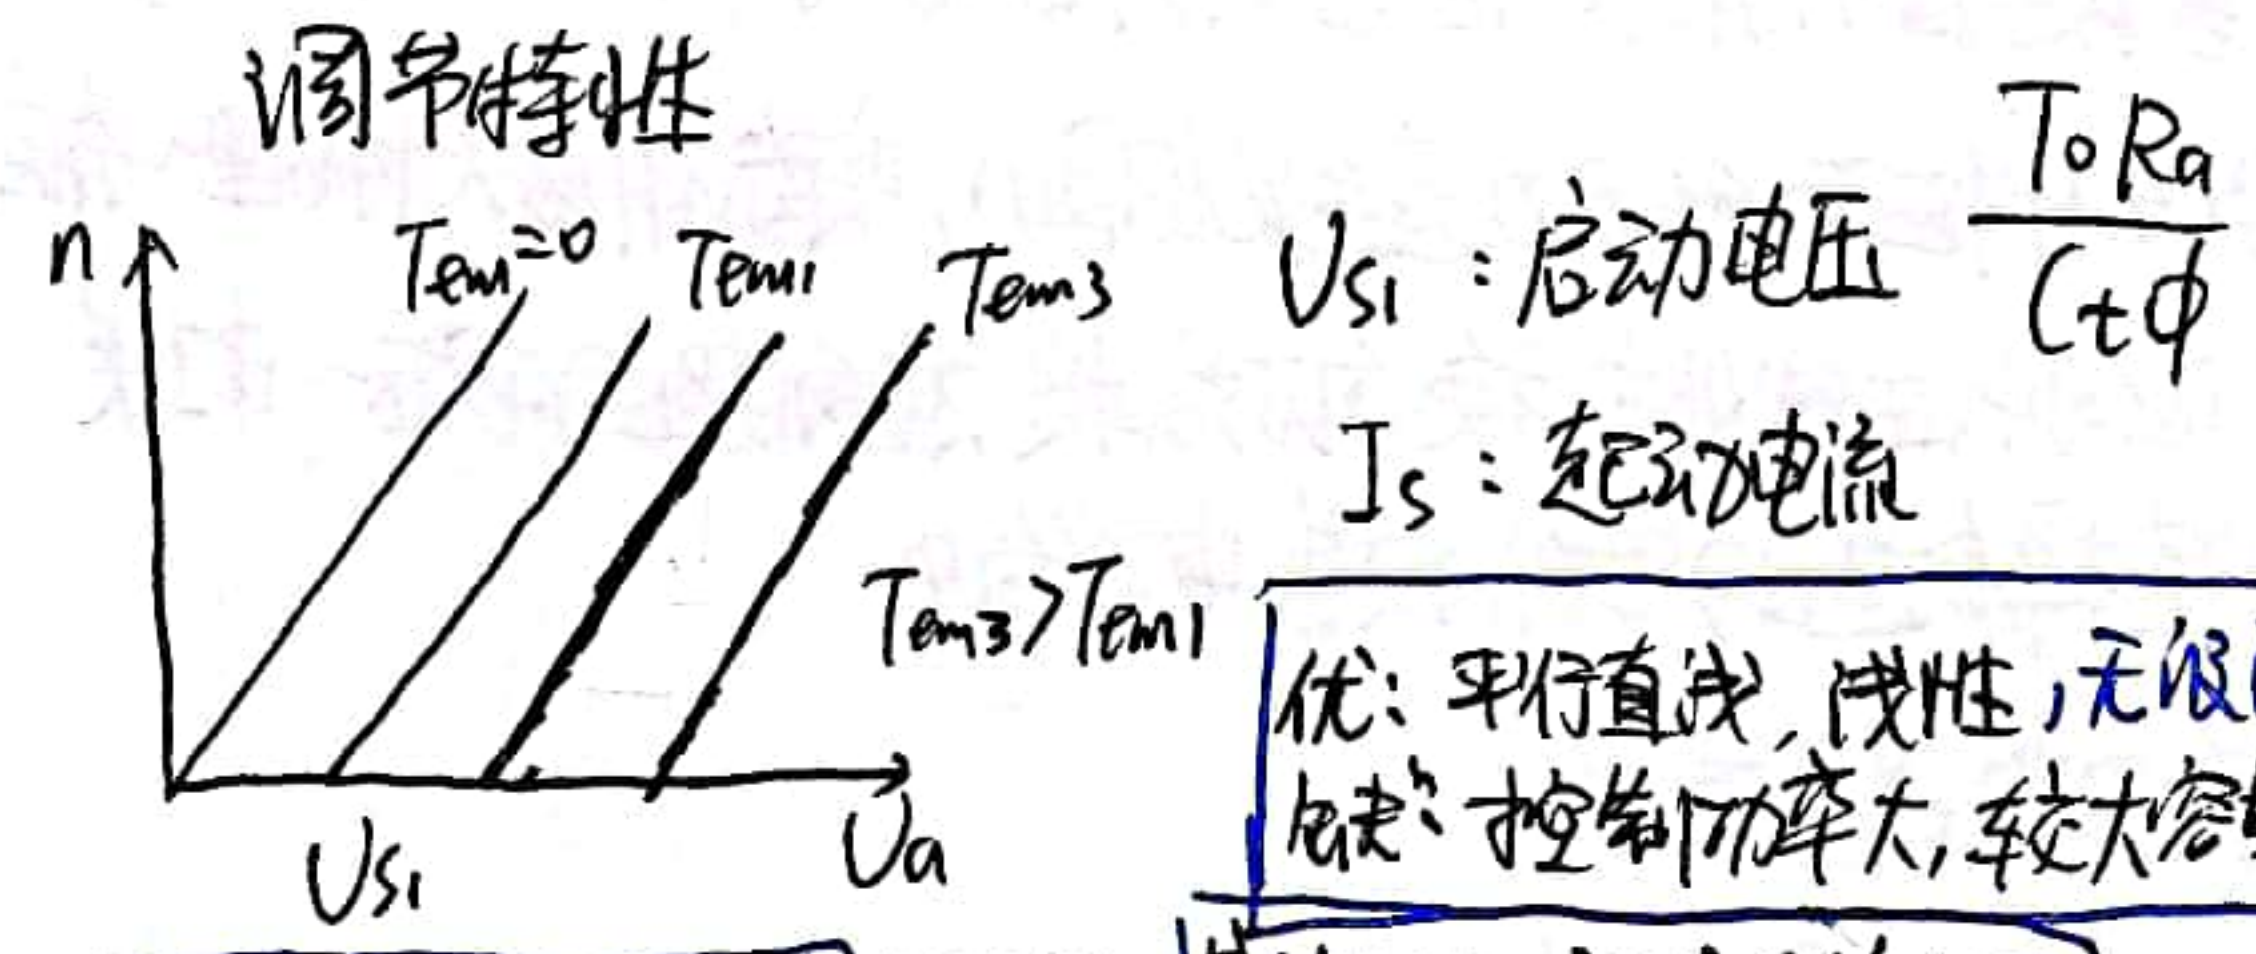 调节特性
n
Tem=0 Tem1 Tem3
Us1
Ua
Tem3>Tem1
Us1:启动电压 T0Ra
Ctφ
Is:起动电流
优:平行直线,线性,无限
缺:控制功率大,较大容